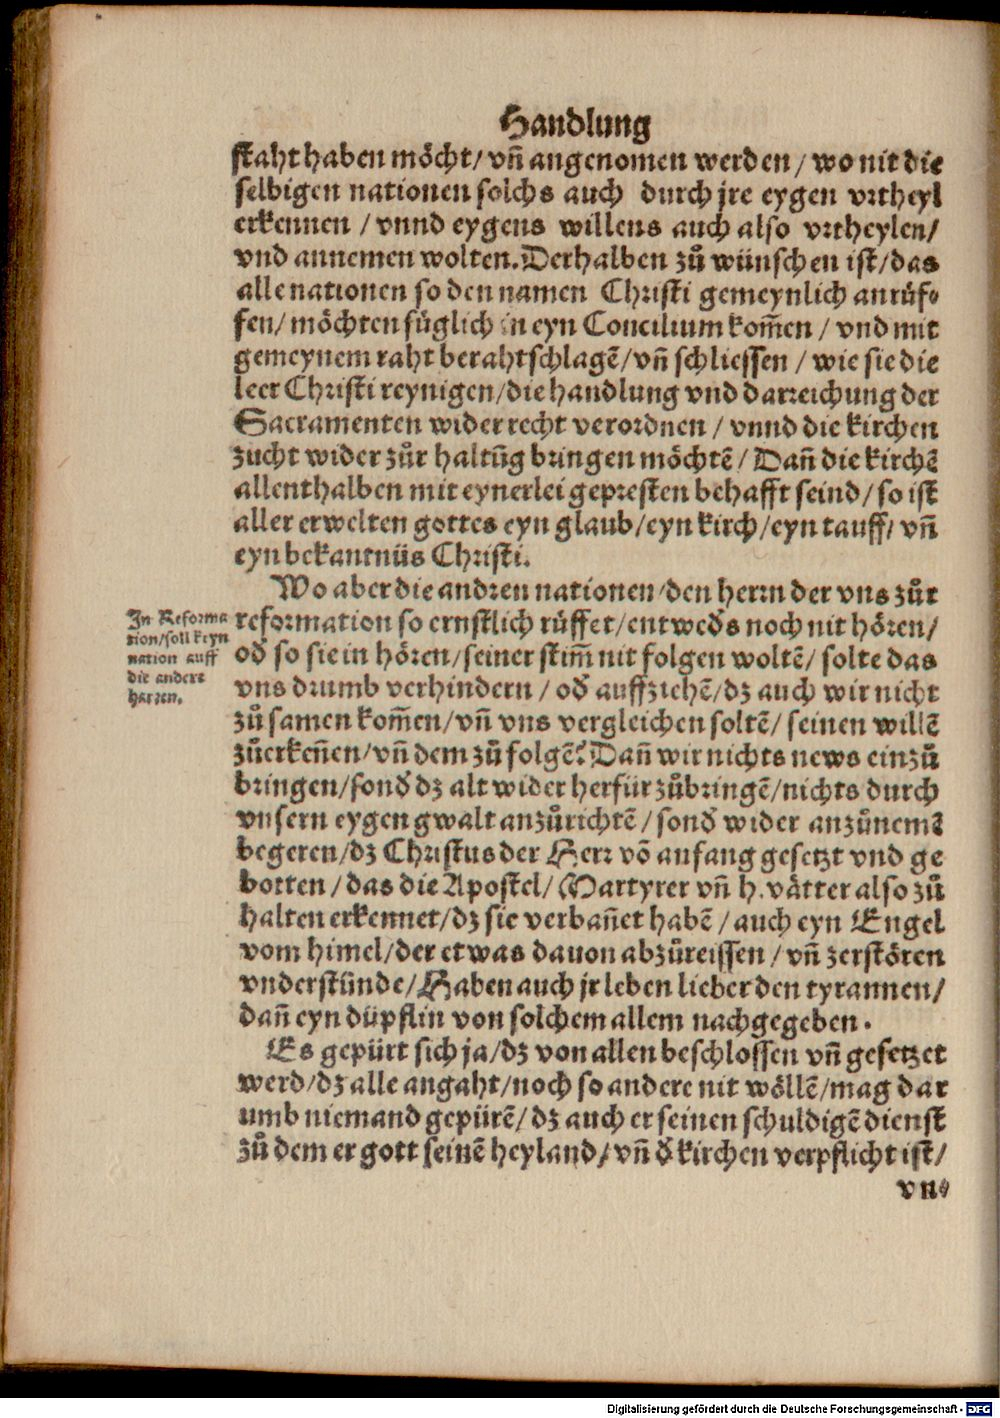 Handlung
staht haben möcht/ vñ angenomen werden / wo nit die
selbigen nationen solchs auch durch jre eygen vrtheyl
erkennen / vnnd eygens willens auch also vrtheylen/
vnd annemen wolten. Derhalben zů wünschen ist/ das
alle nationen so den namen Christi gemeynlich anrüf⸗
fen/ möchten füglich in eyn Concilium kom̃en / vnd mit
gemeynem raht berahtschlagẽ/ vñ schliessen / wie sie die
leer Christi reynigen/ die handlung vnd darreichung der
Sacramenten wider recht verordnen / vnnd die kirchen
zucht wider zůr haltũg bringen möchtẽ/ Dañ die kirchẽ
allenthalben mit eynerlei gepresten behafft seind/ so ist
aller erwelten gottes eyn glaub/ eyn kirch/ eyn tauff/ vñ
eyn bekantnüs Christi.
Wo aber die andren nationen/ den herrn der vns zůr
In Reforma
tion/ soll keyn
nation auff
die andere
harren.
reformation so ernstlich rüffet/ entweđs noch nit hören/
ođ so sie in hören/ seiner stim̃ nit folgen woltẽ/ solte das
vns drumb verhindern / ođ auffziehẽ/ dz auch wir nicht
zůsamen kom̃en/ vñ vns vergleichen soltẽ/ seinen willẽ
zůerkeñen/ vñ dem zů folgẽ? Dañ wir nichts news einzů
bringen/ sonđ dz alt wider herfür zůbringẽ/ nichts durch
vnsern eygen gwalt anzůrichtẽ/ sonđ wider anzůnemẽ
begeren/ dz Christus der Herr võ anfang gesetzt vnd ge
botten / das die Apostel/ Martyrer vñ h. vätter also zů
halten erkennet/ dz sie verbañet habẽ / auch eyn Engel
vom himel/ der etwas dauon abzůreissen / vñ zerstören
vnderstünde/ Haben auch jr leben lieber den tyrannen/
dañ eyn düpflin von solchem allem nachgegeben.
Es gepürt sich ja/ dz von allen beschlossen vñ gesetzet
werd/ dz alle angaht/ noch so andere nit wöllẽ/ mag dar
umb niemand gepürẽ/ dz auch er seinen schuldigẽ dienst
zů dem er gott seinẽ heyland/ vñ đ kirchen verpflicht ist/
vn⸗
Digitalisierung gefördert durch die Deutsche Forschungsgemeinschaft - DFG